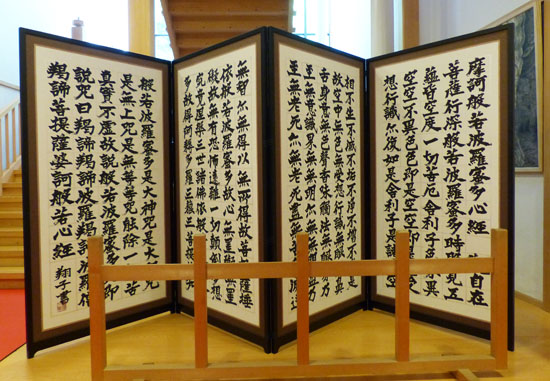 摩訶般若波羅蜜多心経観自在
菩薩行深般若波羅蜜多時照見五
蘊皆空度一切苦厄舎利子色不異
空空不異色色即是空空即是色受
想行識亦復如是舎利子是諸法空
相不生不滅不垢不浄不増不減是
故空中無色無受想行識無眼耳鼻
舌身意無色声香味触法無眼界乃
至無意識界無無明亦無無明尽乃
至無老死亦無老死尽無苦集滅道
無智亦無得以無所得故菩提薩埵
依般若波羅蜜多故心無罣礙無罣
礙故無有恐怖遠離一切顛倒夢想
究竟涅槃三世諸佛依般若波羅蜜
多故得阿耨多羅三藐三菩提故知
般若波羅蜜多是大神咒是大明咒
是無上咒是無等等咒能除一切苦
真實不虚故説般若波羅蜜多咒即
説咒曰羯諦羯諦波羅羯諦波羅僧
羯諦菩提薩婆訶般若心経 翔子書